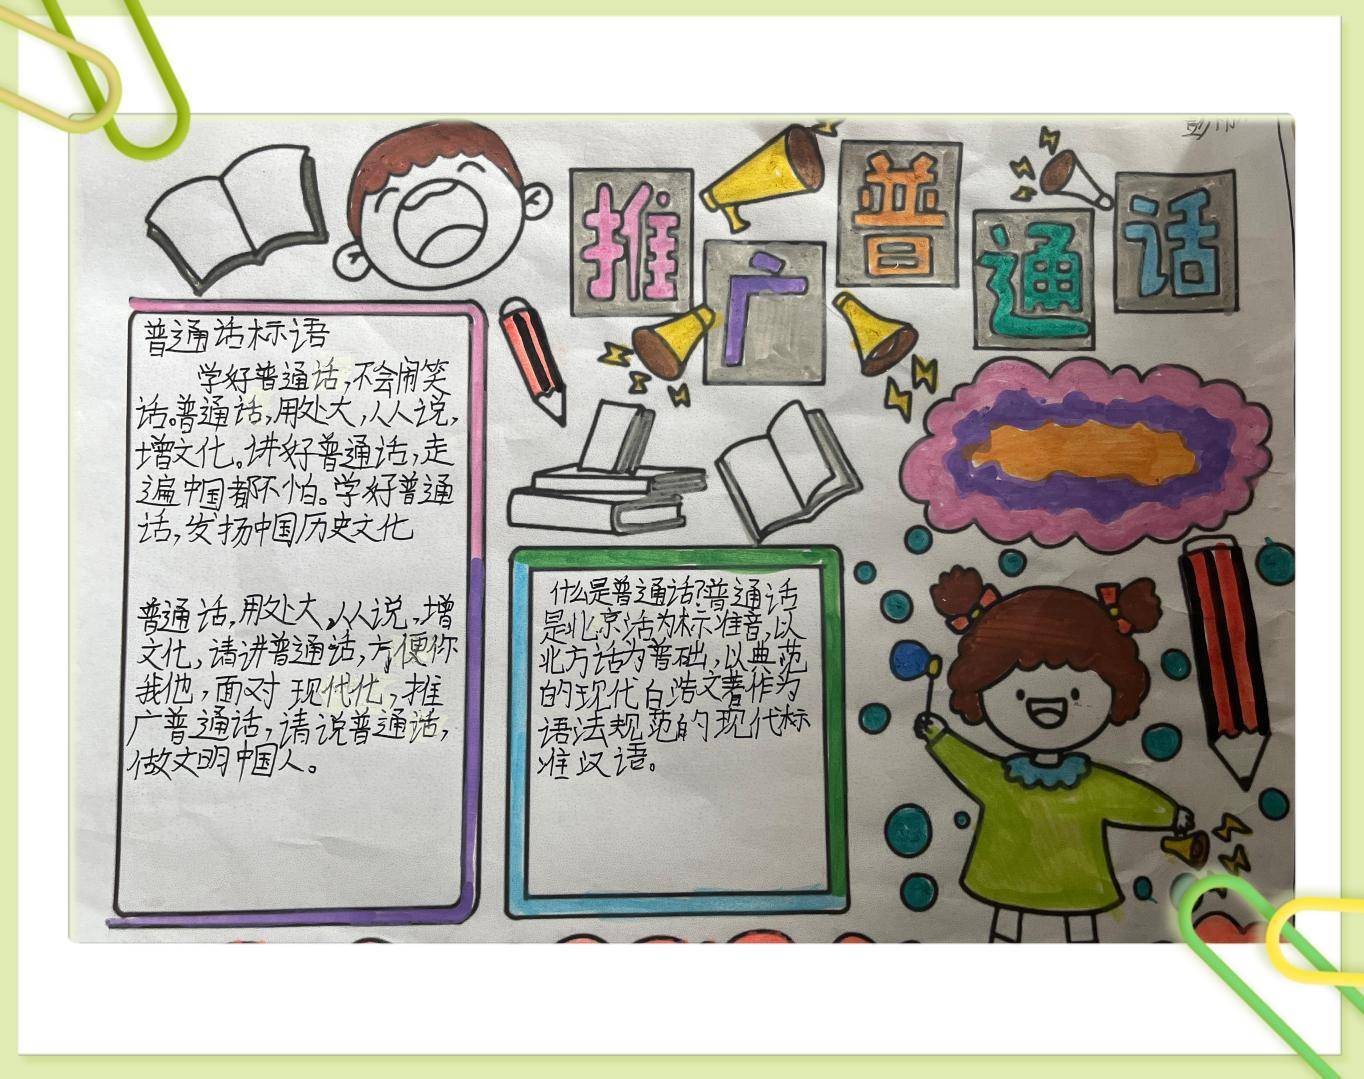 推广普通话
普通话标语
学好普通话,不会闹笑
话。普通话,用处大,人人说,
增文化。讲好普通话,走
遍中国都不怕。学好普通
话,发扬中国历史文化
普通话,用处大,人人说,增
文化,请讲普通话,方便你
我他,面对现代化,推
广普通话,请说普通话,
做文明中国人。
什么是普通话?普通话
是北京话为标准音,以
北方话为基础,以典范
的现代白浩文著作为
语法规范的现代标
准汉语。